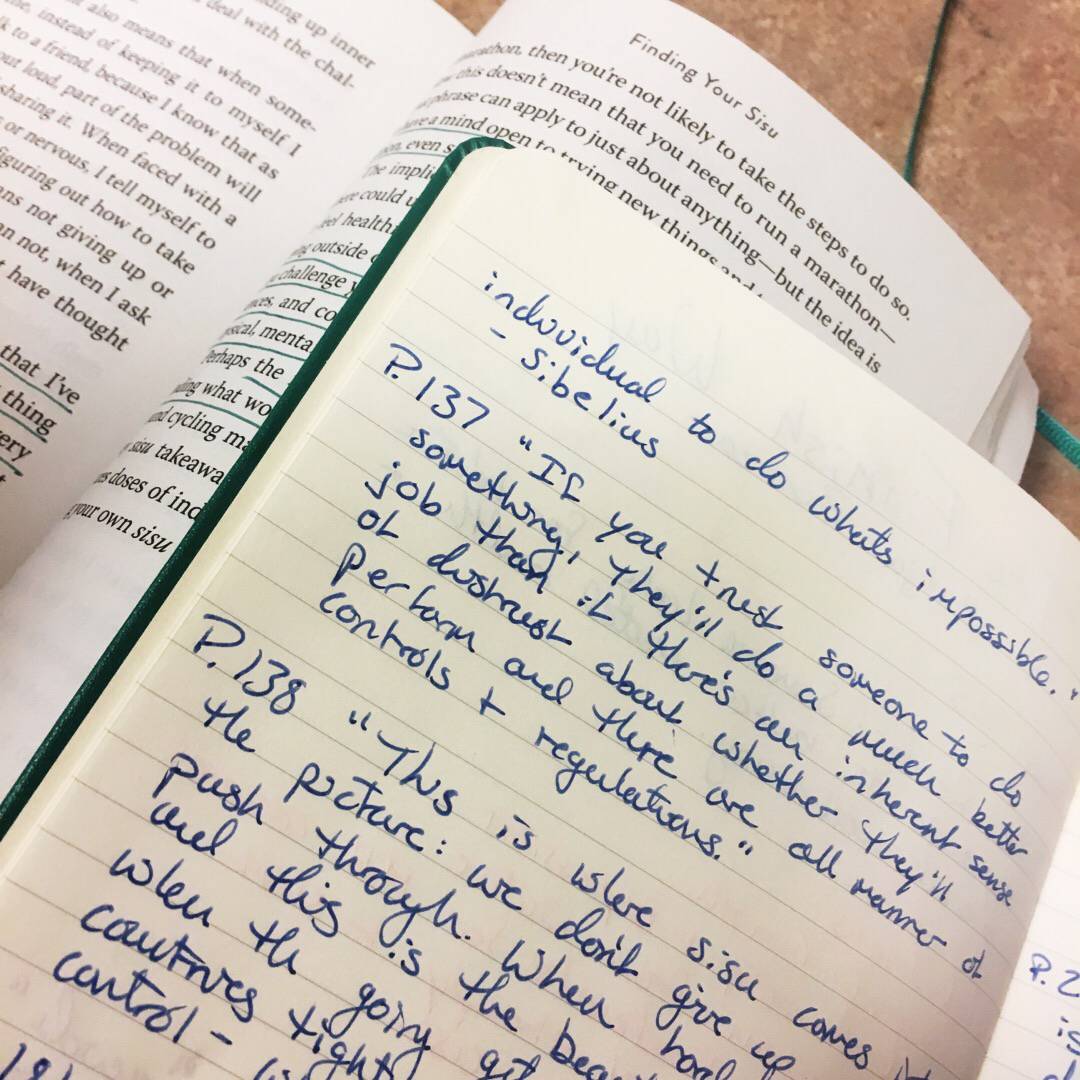 ding up inner
deal with the chal-
also means that when some-
instead of keeping it to myself I
to a friend, because I know that as
out loud, part of the problem will
sharing it. When faced with a
or nervous, I tell myself to
figuring out how to take
ns not giving up or
an not, when I ask
have thought
that I've
thing
ery
Finding Your Sisu
rathon, then you're not likely to take the steps to do so.
this doesn't mean that you need to run a marathon—
phrase can apply to just about anything—but the idea is
ve a mind open to trying new things and
on, even s
The implic
ere could u
eel health
ng outside
challenge y
nces, and co
ysical, menta
Perhaps the
ding what wo
nd cycling ma
sisu takeawa
es doses of ind
your own sisu
individual to do whats impossible."
- Sibelius
P. 137 "If you trust someone to do
something, they'll do a much better
job than if there's an inherent sense
of distrust about whether they'll
perform and there are all manner of
controls + regulations."
P. 138 "This is where sisu comes in
the picture: we don't give up
push through. When hard
and this is the beau
when the going get
countries tight
control -
P. 2
is